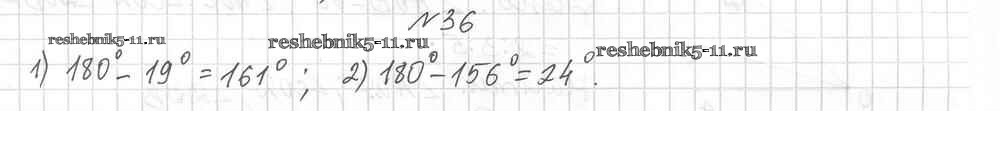 №36
reshebnik5-11.ru reshebnik5-11.ru reshebnik5-11.ru
1) 180° - 19° = 161° ; 2) 180° - 156° = 24°.